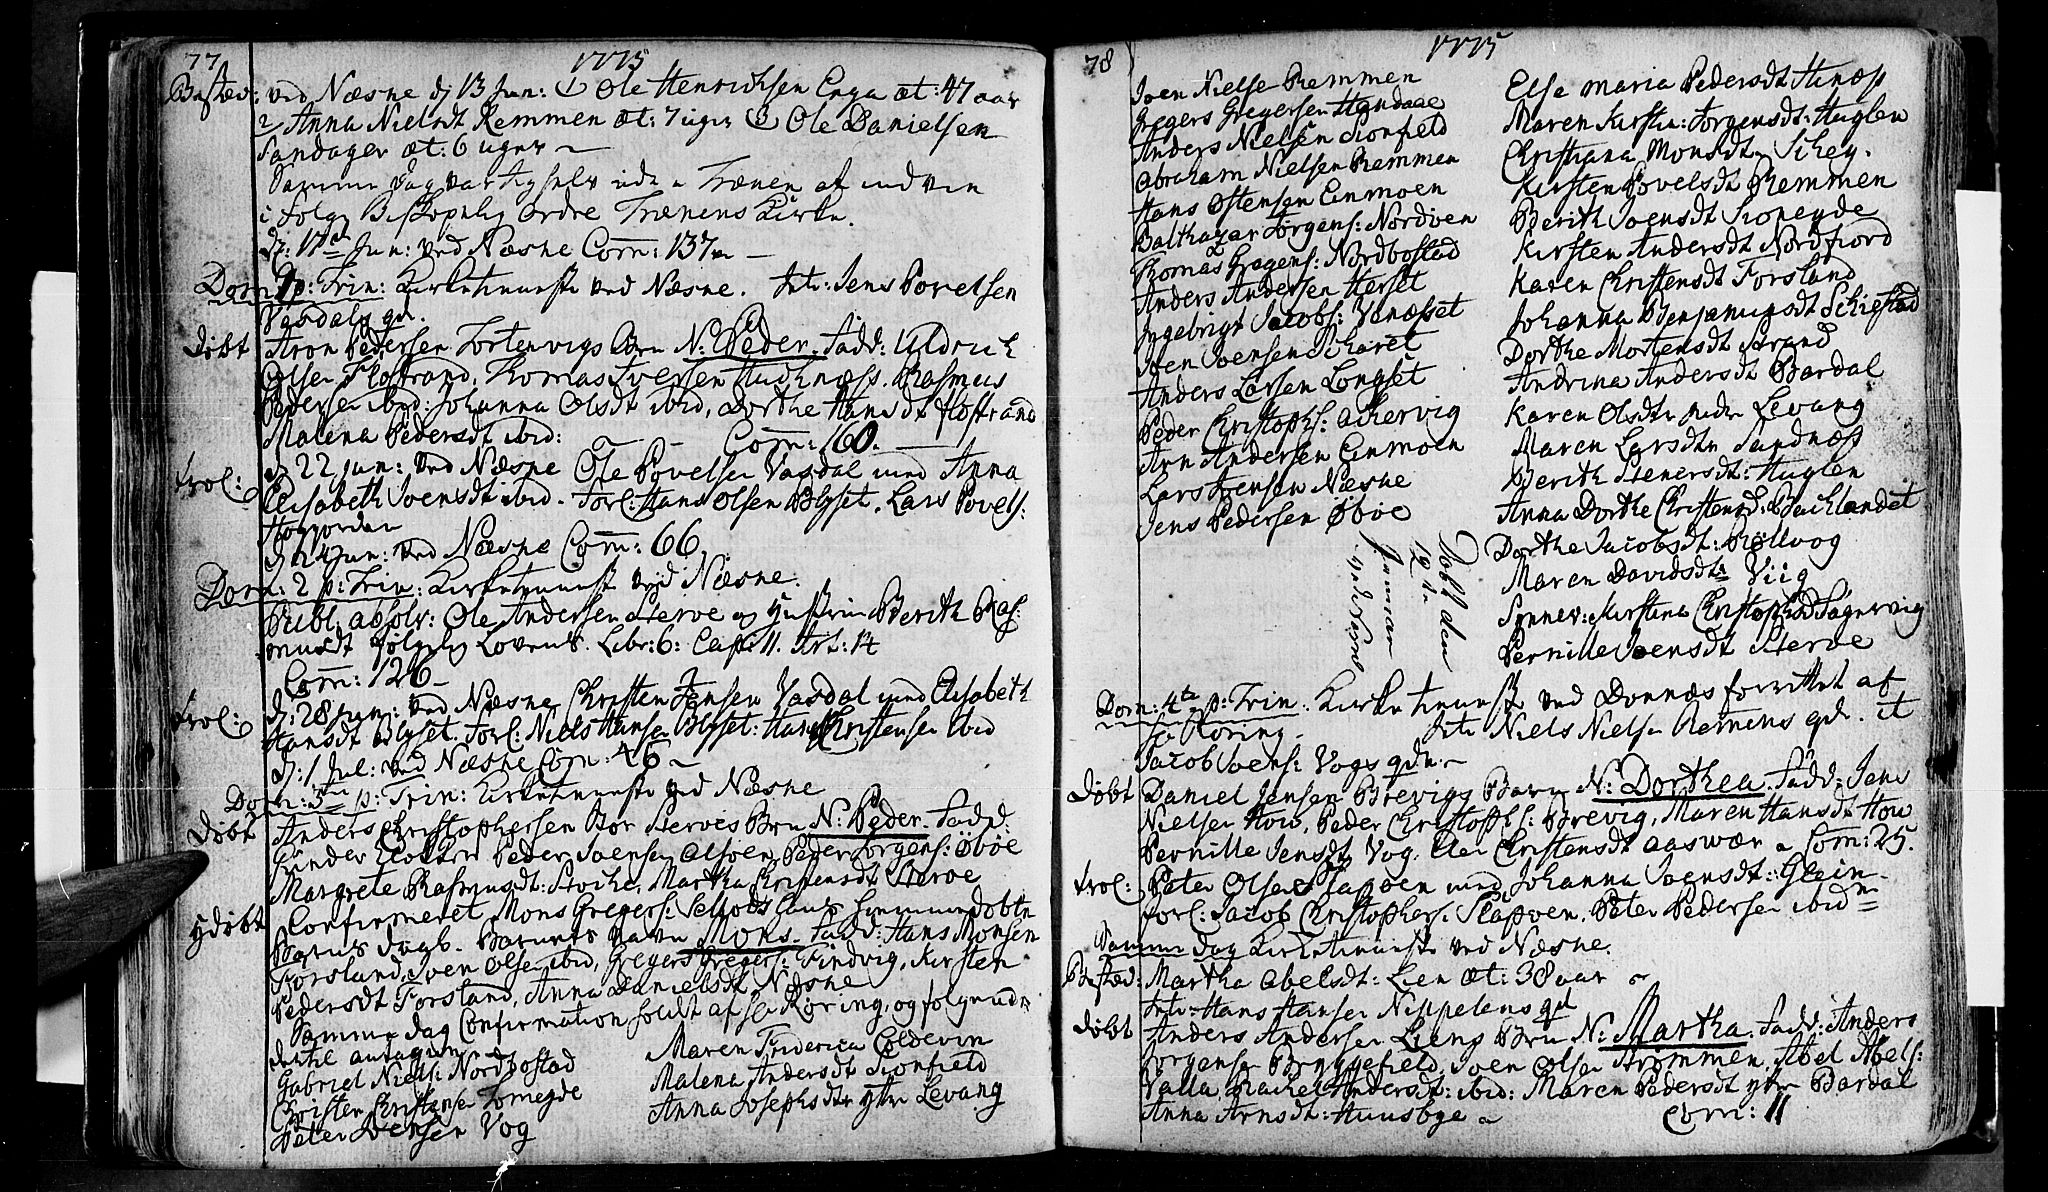 77
1775
Bisted: ved Næsne d: 13 Jun: 1/ Ole Henrichsen Enga æt: 47 aar
2/ Anna Nielsdt Remmen æt: 7 uger 3/ Ole Danielsen
Sandager æt: 6 uger
Samme dag var
i følge Biskopelig Ordre Trænens Kirke.
d: 17d Jun: ved Næsne Com: 137
Dom: 1 p: Trin: Kirketienneste ved Næsne. Intr: Jens Povelsen
Vasdals qd.
Døbt Aron Pedersen Tortenvigs Barn N: Peder. Fadd: Uldrich
Olsen Flostrand, Thomas Iversen Hudnæss, Rasmus
Pedersen ibid: Johanna Olsdt ibid, Dorthe Hansdt Flostrand
Malena Pedersdt ibid: Com: 160.
Trol: d: 22 Jun: ved Næsne Ole Povelsen Vasdal med Anna
Elisabeth Joensdt ibid. Forl: Hans Olsen Blyset, Lars Povels:
d: 24 Jun: ved Næsne Com: 66.
Dom: 2 p: Trin: Kirketienneste ved Næsne.
Publ. absolv: Ole Andersen Stervo og Hustru Berith Ras
musdt følgelig Lovens Libr: 6: Cap: 11. Art: 14
Com: 126
Trol: d: 28 Jun: ved Næsne Christen Jensen Vasdal med Elisabeth
Hansdt Blyset. Forl: Niels Hansen Blyset: Hans Christensen ibid
d: 1 Jul: ved Næsne Com: 46
Dom: 3tie p: Trin: Kirketienneste ved Næsne
Døbt Anders Christophersen Stervos Barn N: Peder. Fadd:
Peder Joensen Alsøen, Peder Jørgens: Øboe
Margrete Rasmusdt: Stoche, Martha Christensdt Stervo
Hdøbt Confirmeret Mons Gregers: Selfors hans hiemmedøbte
Barns daab. Barnets navn Mons. Fadd: Hans Monsen
Forsland, Joen Olsen ibid, Gregers Gregers: Findvig, Kirsten
Pedersdt Forsland, Anna Danielsdt Næsne
Samme dag Confirmation holdt af Hr Røring, og følgende
dertil antagne
Gabriel Niels: Nordbostad
Christen Christensen
Peter Joensen Vog
Maren Friderica Coldevin
Malena Andersdt Konfield
Anna Josephsdtr ytre Levang
78
1775
Joen Nielse Remmen
Gregers Gregersen Handaae
Anders Nielsen Konfield
Abraham Nielsen Remmen
Hans Østensen Einmoen
Balthazar Jørgens: Nordven
Thomas Gregers: Nordbostad
Anders Andersen Herset
Ingebrigt Jacobs: Venæsset
Joen Joensen Scharet
Anders Larsen Longset
Peder Christophs: Achervig
Arn Andersen Einmoen
Lars Jensen Næsne
Jens Pedersen Øboe
Døbt den
12te
Januar
ved Næsne
Else Maria Pedersdt Hunæss
Maren Kirstin: Jørgensdt: Huglen
Christiana Monsdtr Schey.
Kirsten Povelsdt Remmen
Berith Joensdt
Kirsten Andersdt Nordfiord
Karen Christensdt Forsland
Johanna Benjaminsdt Schiestad
Dorthe Mortensdt Strand
Andrina Andersdt Bardal
Karen Olsdtr nedre Levang
Maren Larsdtr Sandnæss
Berith Stenersdt: Huglen
Anna Dorthe Christensd: Bachlandet
Dorthe Jacobsdt: Røllvog
Maren Davidsdt: Viig
Synnev: Kirstina Christophsd Sagervig
Pernille Joensdt Stervo
Dom: 4te p: Trin: Kirketienneste ved Dønnæs forrettet af
Hr Røring. Intr: Niels Nielsen Remens qd. it
Jacob Joens: Vogs qde.
Døbt Daniel Jensen Brevigs Barn N: Dorthea. Fadd: Jens
Nielsen How, Peder Christophs: Brevig, Maren Hansdt How
Pernille Jensdt Vog, Elen Christensdt Aasvær Com: 25.
Trol: Peter Olsen Slapøen med Johanna Joensdt: Glein
Forl: Jacob Christophers: Slapøen, Peter Pedersen ibidm
Samme dag Kirketienneste ved Næsne.
Bisted: Martha Abelsdt: Lien æt: 38 aar
Intr: Hans Hansen Nippelens qd
Døbt Anders Andersen Liens Barn N: Martha. Fadd: Anders
Jørgensen Bryggefield, Joen Olsen Strømmen, Abel Abels:
Valla, Rachel Andersdt: ibid: Maren Pedersdt ytre Bardal
Anna Arnsdt: Huusbye
Com: 11